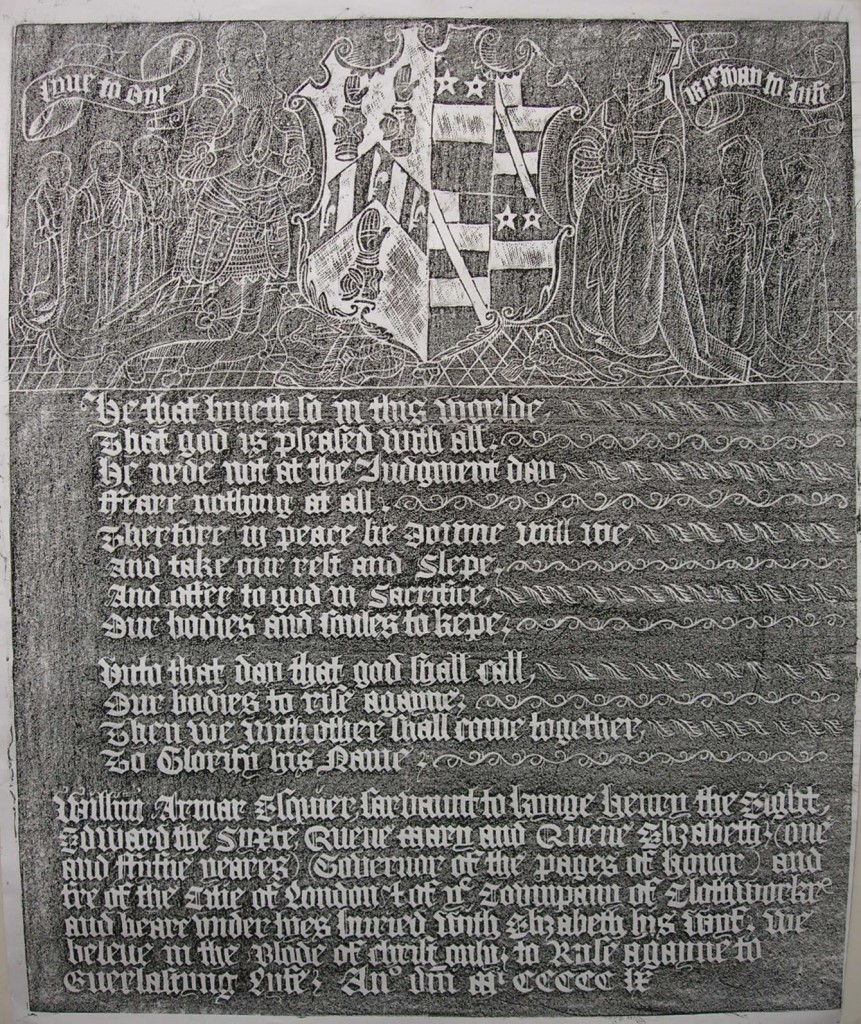 loue to one
is yᵉ wan to life
He that liueth so in this worlde,
That god is pleased with all,
He nede not at the Iudgment dan,
ffeare nothing at all.
Therfore in peace lie Downe will we,
And take our rest and Slepe,
And offer to god in Sacrifice,
Our bodies and soules to kepe,
Vnto that dan that god shall call,
Our bodies to rise agayne,
Then we with other shall come together,
To Glorify his Name,
Willm̄ Armar Esquier, saruaunt to kynge Henry the Eight,
Edward the Sixte Quene mary and Quene Elizabeth, (one
and ffiftie yeares) (Gouernor of the pages of honor) and
fre of the Citie of London & of yᵉ Companỹ of Clothworkeˢ
and heare vnder lyes buried with Elizabeth his wyf, we
beleue in the Blode of christ only, to Raise agayne to
Euerlasting Life, Anᵒ dm̄ Mᵗ CCCCC LX